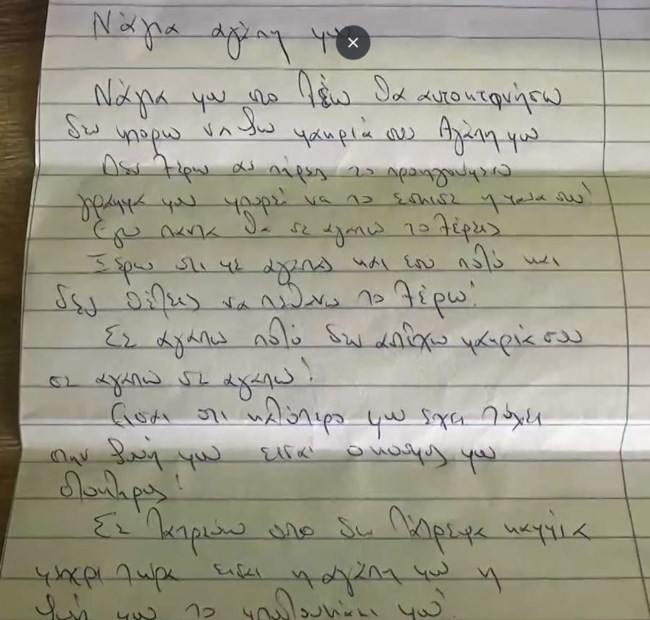 Νάγια αγάπη μου
Νάγια μου στο λέω θα αυτοκτονήσω
δεν μπορω να ζω μακριά σου Αγάπη μου
Δεν ξέρω αν πήρες το προηγούμενο
γράμμα μου μπορεί να το έσκισε η μανα σου!
Εγω παντα θα σε αγαπω το ξέρεις
Ξέρω οτι με αγαπας και εσυ πολύ και
δεν θέλεις να πεθανω το ξέρω!
Σε αγαπω πολύ δεν αντέχω μακριά σου
σε αγαπω σε αγαπω!
Εισαι οτι καλύτερο μου εχει τύχει
στην ζωή μου εισαι ο κοσμος μου
ολοκληρος!
Σε λατρευω οπο δεν λάτρεψα καμμία
μεχρι τωρα εισαι η αγάπη μου η
ζωή μου το μου!